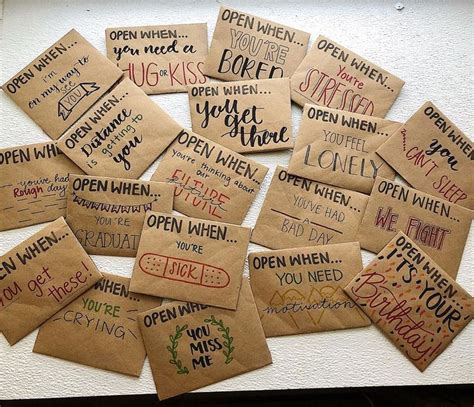 OPEN WHEN...
i'm
on my way to
see
YOU
OPEN WHEN...
you need a
HUG OR KISS
OPEN WHEN...
YOU'RE
BORED
OPEN WHEN...
You're
STRESSED
OPEN WHEN...
Distance
is getting to
you
OPEN WHEN...
you get
there
OPEN WHEN...
YOU FEEL
LONELY
OPEN WHEN...
you
CAN'T SLEEP
OPEN WHEN...
you've had
Rough day
OPEN WHEN...
you're thinking about
our
FUTURE
OPEN WHEN...
YOU'RE
GRADUAT
OPEN WHEN...
YOU'VE HAD
A
BAD DAY
OPEN WHEN...
WE FIGHT
OPEN WHEN...
You get
these!
OPEN WHEN...
YOU'RE
CRYING
OPEN WHEN...
YOU'RE
SICK
OPEN WHEN...
YOU
MISS
ME
OPEN WHEN...
YOU NEED
motivation
OPEN WHEN...
IT'S YOUR
Birthday!